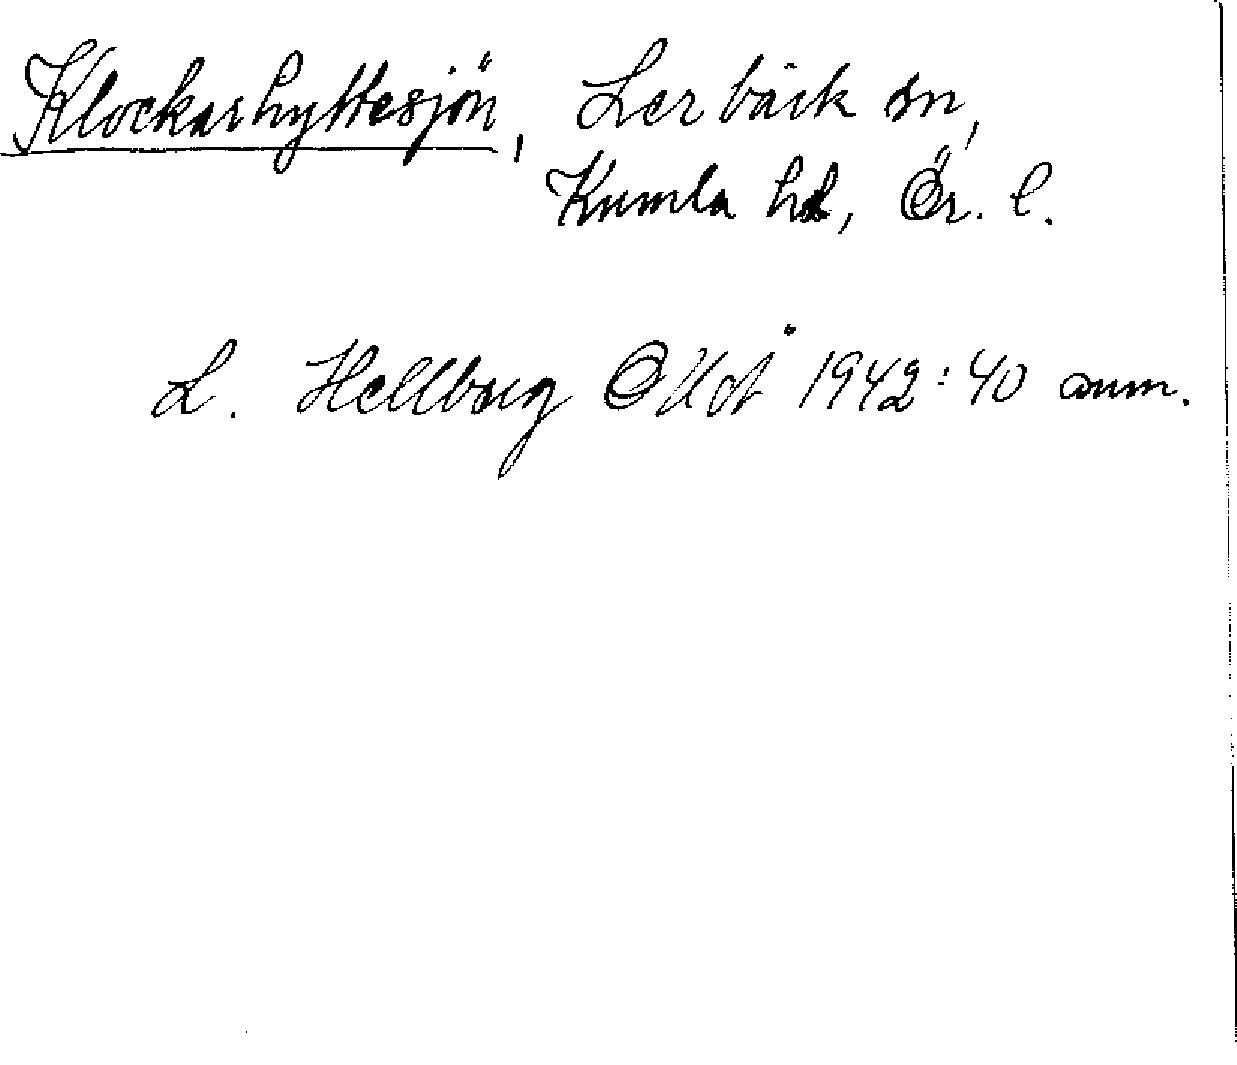 Klockarhyttesjön, Lerbäck sn,
Kumla hd, Ör. l.
L. Hellberg OUoÅ 1942:40 anm.